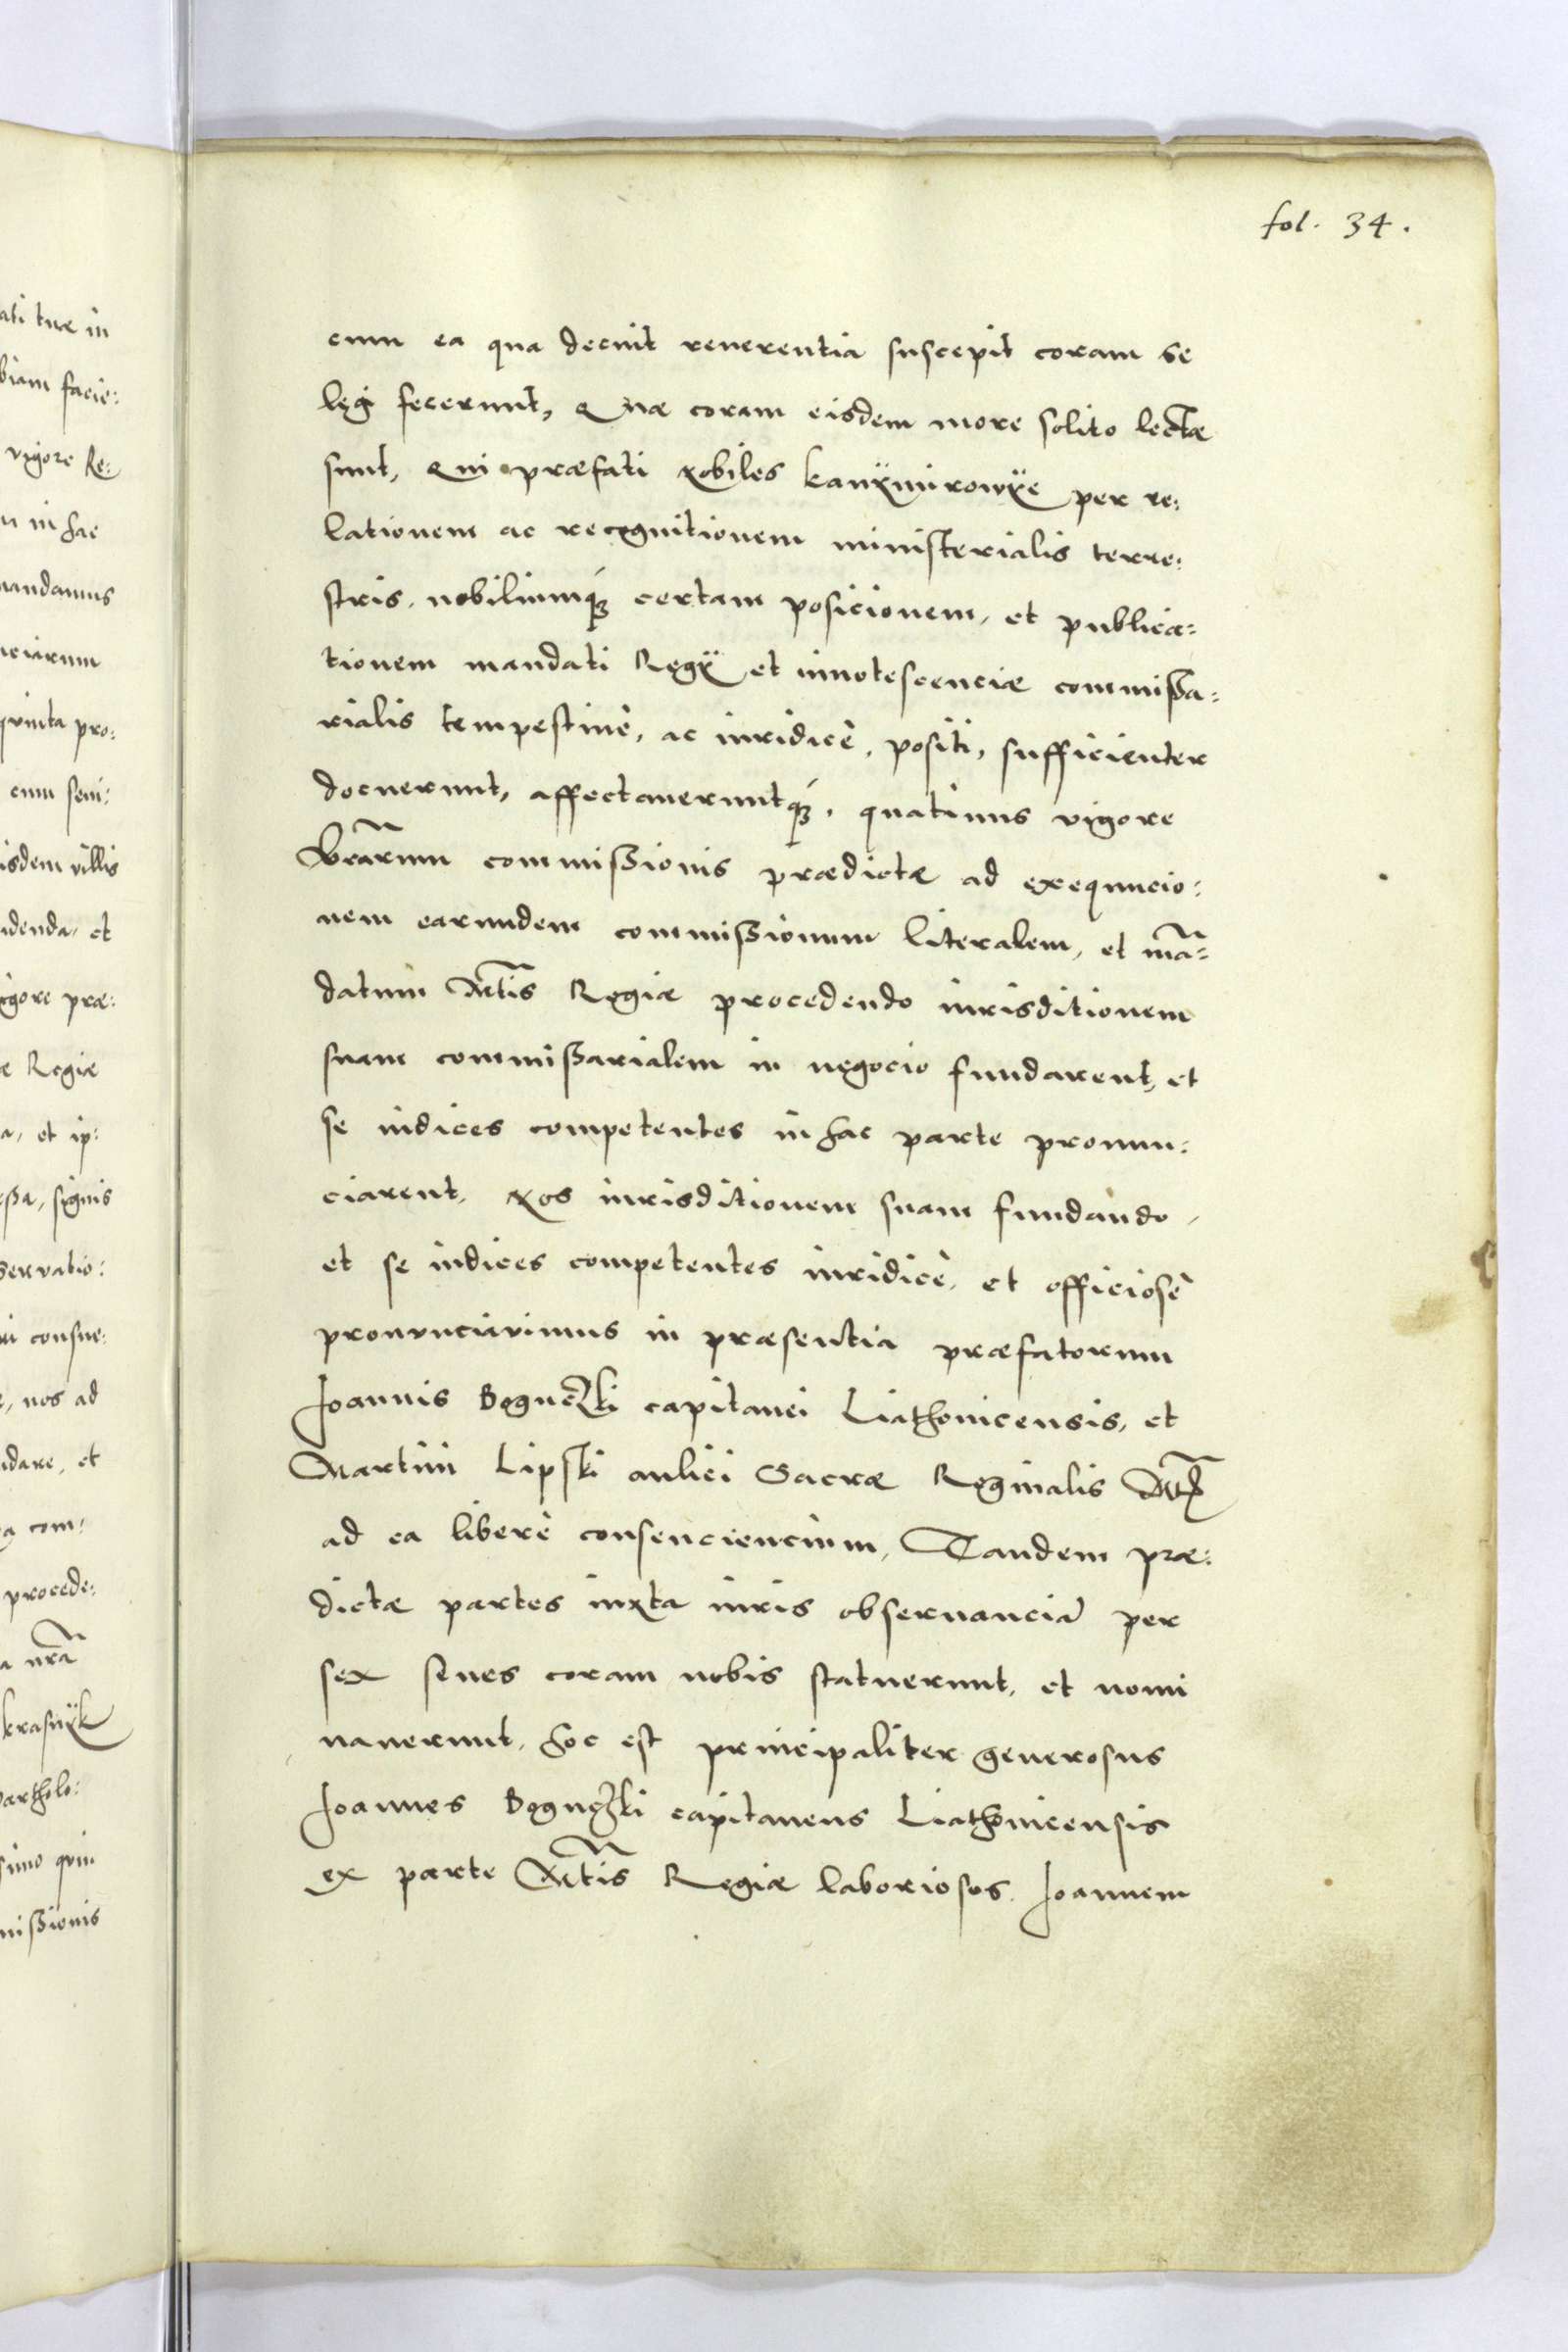 fol. 34.
cum ea qua decuit reuerentia suscepit coram se
legi fecerunt, Quæ coram eisdem more solito lectæ
sunt, Qui præfati Nobiles kanÿmirowÿe per re:
lationem ac recognitionem ministerialis terre:
stris, nobiliumq́ȝ certam posicionem, et publica:
tionem mandati Regÿ et innotescenciæ commißa:
rialis tempestiuè, ac iuridicè, positi, sufficienter
docuerunt, affectaueruntq́ȝ, quatinus vigore
Lrãrum commißionis prædictæ ad exequucio:
nem earundem commißionum literalem, et mã:
datum Mtis Regiæ procedendo iurisditionem
suam commißarialem in negocio fundarent, et
se iudices competentes in hac parte pronun:
ciarent, Nos iurisditionem suam fundando,
et se iudices competentes iuridicè, et officiosè
pronunciauimus in præsentia præfatorum
Joannis Boguczki capitanei Liathouicensis, et
Martini Lipski aulici Sacræ Reginalis
ad ea liberè consenciencium, Tandem præ:
dictæ partes iuxta iuris obseruanciã per
sex senes coram nobis statuerunt, et nomi
nauerunt, hoc est principaliter generosus
Joannes Boguczki capitaneus Liathouicensis
ex parte Mtis Regiæ laboriosos Joannem
ati tuæ in
biam facie:
vigore Re:
in hac
mandamus
nciarum
quinta pro:
cum seni:
isdem villis
idenda, et
igore præ:
æ Regiæ
a, et ip:
eßa, signis
servatio:
ri consue:
e, nos ad
ndare, et
a com:
procede:
a nrã
krasnÿk
artholo:
simo quin
mißionis